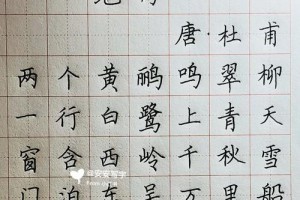 绝句
唐·杜甫
两个黄鹂鸣翠柳
一行白鹭上青天
窗含西岭千秋雪
门泊东吴万里船
@安安写字